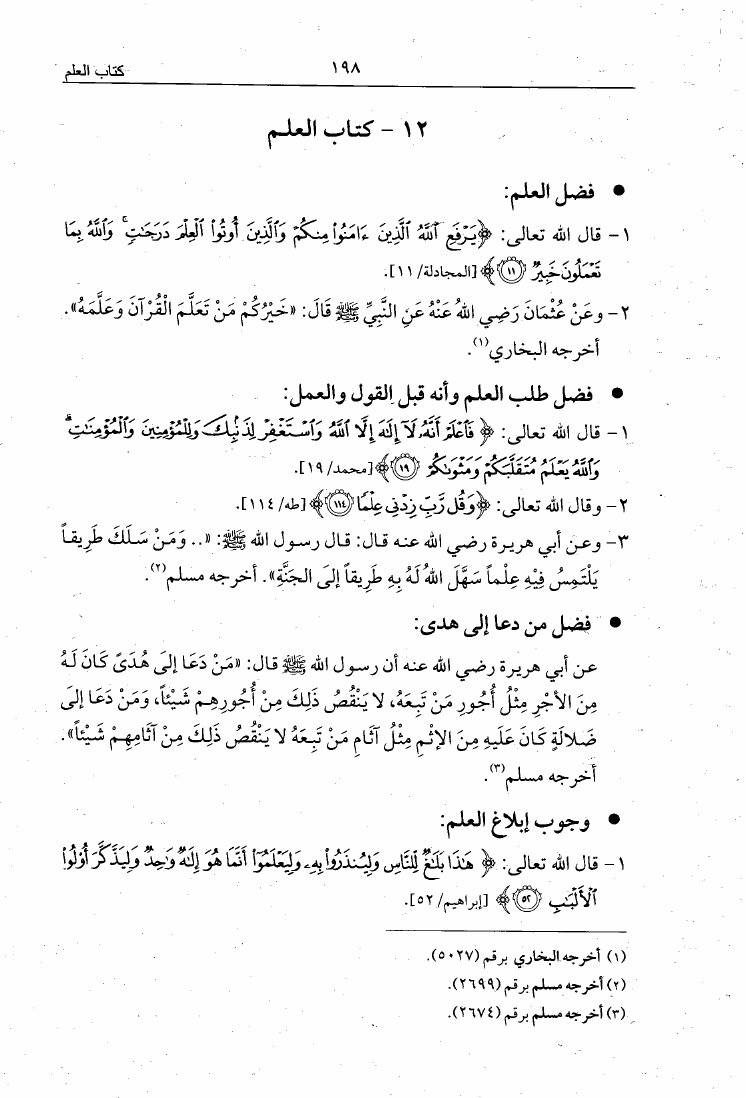 كتاب العلم ١٩٨
١٢ - كتاب العلم
● فضل العلم:
١- قال الله تعالى: ﴿يَرْفَعِ ٱللَّهُ ٱلَّذِينَ ءَامَنُوا۟ مِنكُمْ وَٱلَّذِينَ أُوتُوا۟ ٱلْعِلْمَ دَرَجَـٰتٍ ۚ وَٱللَّهُ بِمَا
تَعْمَلُونَ خَبِيرٌ ۝١١﴾ [المجادلة/١١].
٢- وعَنْ عُثْمَانَ رَضِي اللهُ عَنْهُ عَنِ النَّبِيِّ ﷺ قَالَ: «خَيْرُكُمْ مَنْ تَعَلَّمَ الْقُرْآنَ وَعَلَّمَهُ».
أخرجه البخاري(١).
● فضل طلب العلم وأنه قبل القول والعمل:
١- قال الله تعالى: ﴿فَٱعْلَمْ أَنَّهُۥ لَآ إِلَـٰهَ إِلَّا ٱللَّهُ وَٱسْتَغْفِرْ لِذَنۢبِكَ وَلِلْمُؤْمِنِينَ وَٱلْمُؤْمِنَـٰتِ ۗ
وَٱللَّهُ يَعْلَمُ مُتَقَلَّبَكُمْ وَمَثْوَىٰكُمْ ۝١٩﴾ [محمد/١٩].
٢- وقال الله تعالى: ﴿وَقُل رَّبِّ زِدْنِى عِلْمًا ۝١١٤﴾ [طه/١١٤].
٣- وعن أبي هريرة رضي الله عنه قال: قال رسول الله ﷺ: «.. وَمَنْ سَلَكَ طَرِيقاً
يَلْتَمِسُ فِيْهِ عِلْماً سَهَّلَ اللهُ لَهُ بِهِ طَرِيقاً إلَى الجَنَّةِ». أخرجه مسلم(٢).
● فضل من دعا إلى هدى:
عن أبي هريرة رضي الله عنه أن رسول الله ﷺ قال: «مَنْ دَعَا إلَى هُدَىً كَانَ لَهُ
مِنَ الأجْرِ مِثْلُ أُجُورِ مَنْ تَبِعَهُ، لا يَنْقُصُ ذَلِكَ مِنْ أُجُورِهِمْ شَيْئاً، وَمَنْ دَعَا إلَى
ضَلالَةٍ كَانَ عَلَيهِ مِنَ الإثْمِ مِثْلُ آثَامِ مَنْ تَبِعَهُ لا يَنْقُصُ ذَلِكَ مِنْ آثَامِهِمْ شَيْئاً».
أخرجه مسلم(٣).
● وجوب إبلاغ العلم:
١- قال الله تعالى: ﴿هَـٰذَا بَلَـٰغٌ لِّلنَّاسِ وَلِيُنذَرُوا۟ بِهِۦ وَلِيَعْلَمُوٓا۟ أَنَّمَا هُوَ إِلَـٰهٌ وَٰحِدٌ وَلِيَذَّكَّرَ أُو۟لُوا۟
ٱلْأَلْبَـٰبِ ۝٥٢﴾ [إبراهيم/٥٢].
(١) أخرجه البخاري برقم (٥٠٢٧).
(٢) أخرجه مسلم برقم (٢٦٩٩).
(٣) أخرجه مسلم برقم (٢٦٧٤).